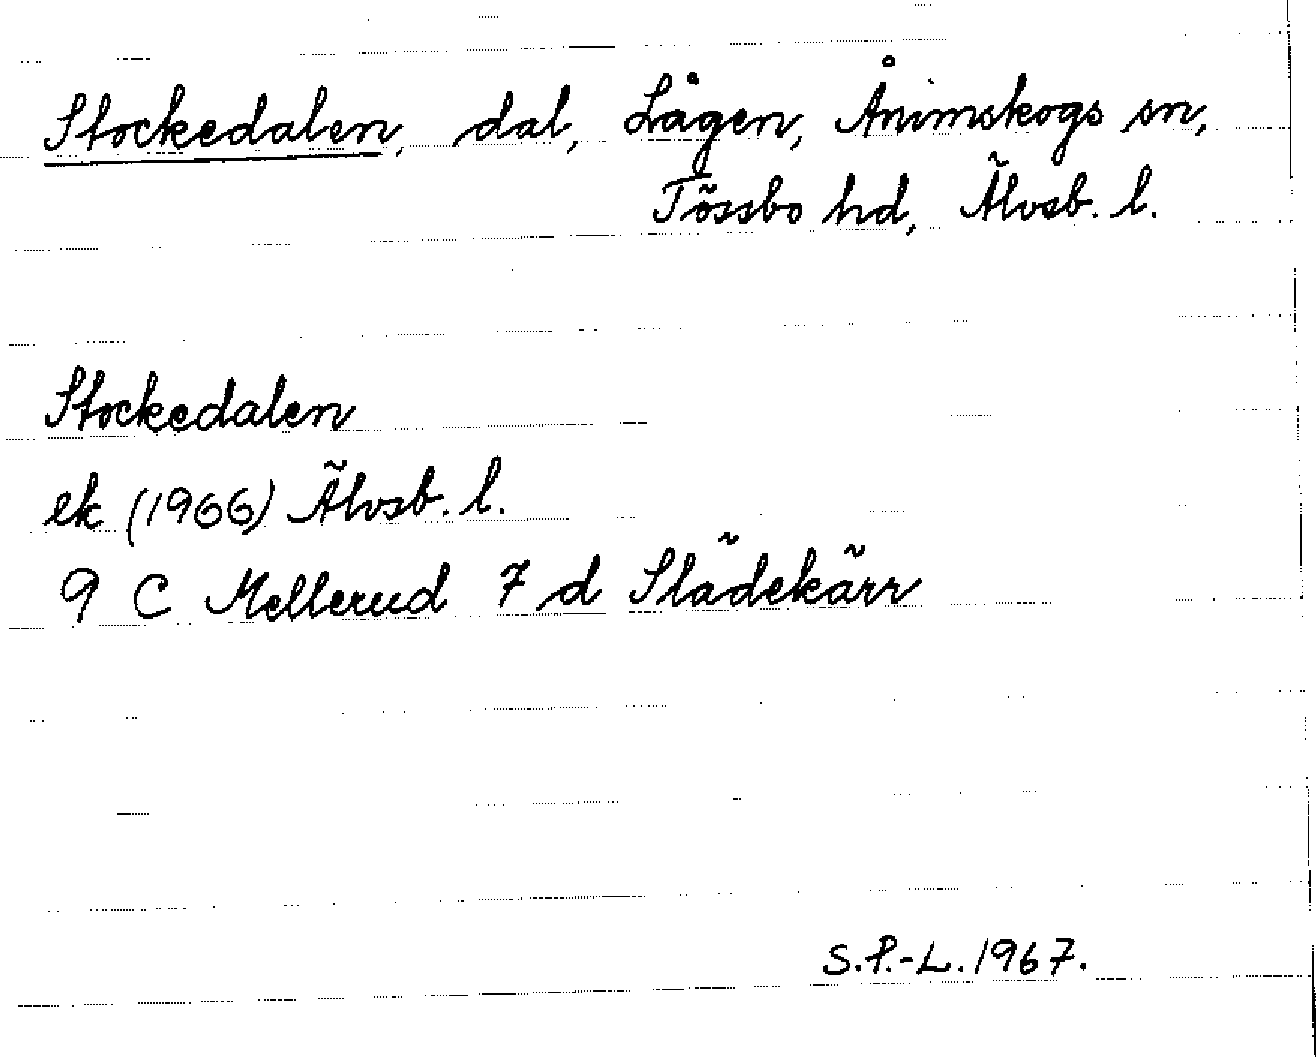 Stockedalen, dal, Lågen, Ånimskogs sn,
Tössbo hd, Älvsb. l.
Stockedalen
ek (1966) Älvsb. l.
9 C Mellerud 7 d Slädekärr
S.P.-L. 1967.